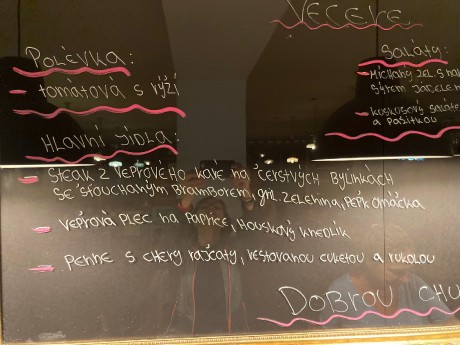 VEČEŘE
POLÉVKA:
- tomatova s rýží
HLAVNÍ JÍDLA:
- STEAK Z VEPŘOVÉHO KARÉ NA ČERSTVÝCH BYLINKÁCH
SE ŠŤOUCHANÝM BRAMBOREM, GRIL. ZELENINA, PEPŘ. OMÁČKA
- VEPŘOVÁ PLEC NA PAPRICE, HOUSKOVÝ KNEDLÍK
- PENNE S CHERY RAJČATY, RESTOVANOU CUKETOU A RUKOLOU
SALÁTY:
- MÍCHANÝ ZEL. S
SÝREM
- KUSKUSOVÝ
A PAŽITKOU
DOBROU CHU